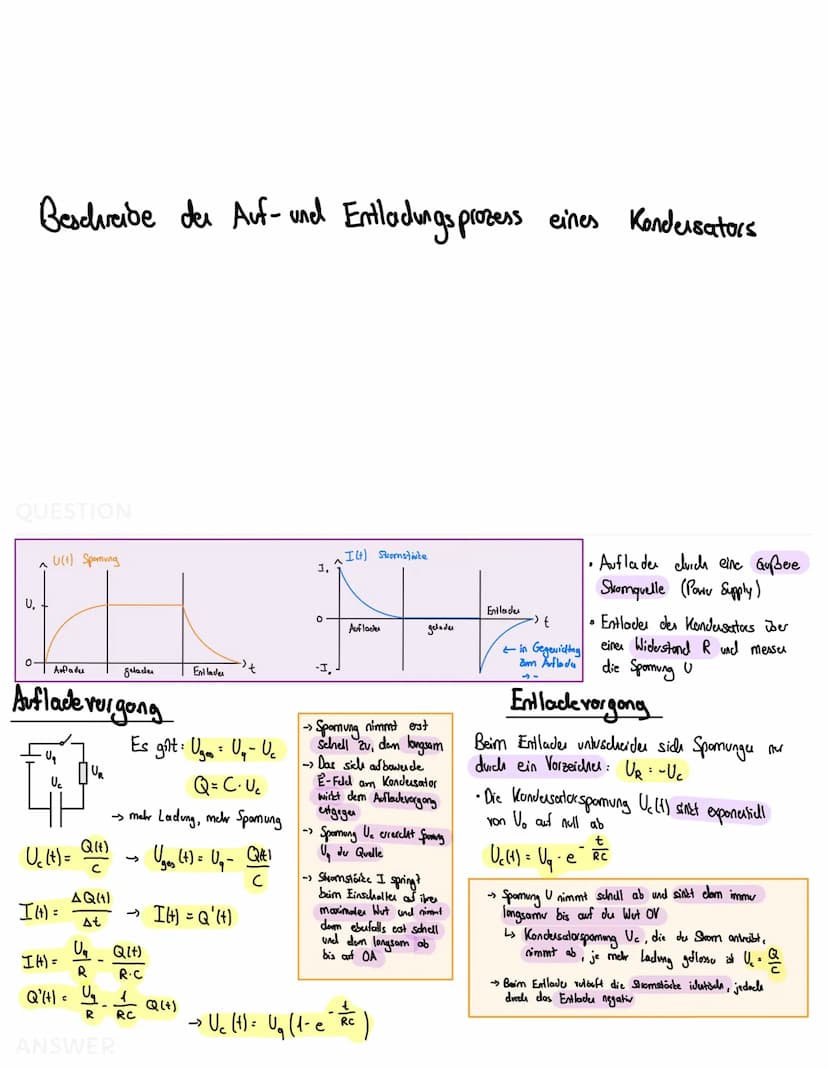 Beschreibe den Auf- und Entladungsprozess eines Kondensators
QUESTION
U(t) Spannung
U₀
0
Aufladen
geladen
Entladen
t
I(t) Stromstärke
I₀
0
-I₀
Aufladen
geladen
Entladen
t
← in Gegenrichtung
zum Aufladen
• Aufladen durch eine äußere
Stromquelle (Power Supply)
• Entladen des Kondensators über
einen Widerstand R und messen
die Spannung U
Aufladevorgang
Uq
Uc
UR
Es gilt: Uges = Uq - Uc
Q = C · Uc
→ mehr Ladung, mehr Spannung
Uc(t) = Q(t)/C → Uges(t) = Uq - Q(t)/C
I(t) = ΔQ(t)/Δt → I(t) = Q'(t)
I(t) = Uq/R - Q(t)/R·C
Q'(t) = Uq/R - 1/RC Q(t)
→ Uc(t) = Uq (1-e^-t/RC)
→ Spannung nimmt erst
schnell zu, dann langsam
→ Das sich aufbauende
E-Feld am Kondensator
wirkt dem Aufladevorgang
entgegen
→ Spannung Uc erreicht Spannung
Uq der Quelle
→ Stromstärke I springt
beim Einschalten auf ihren
maximalen Wert und nimmt
dann ebenfalls erst schnell
und dann langsam ab
bis auf 0A
Entladevorgang
Beim Entladen unterscheiden sich Spannungen nur
durch ein Vorzeichen: UR = -Uc
• Die Kondensatorspannung Uc(t) sinkt exponentiell
von U₀ auf null ab
Uc(t) = Uq · e^-t/RC
→ Spannung U nimmt schnell ab und sinkt dann immer
langsamer bis auf den Wert 0V
↳ Kondensatorspannung Uc, die den Strom antreibt,
nimmt ab, je mehr Ladung geflossen ist Uc = Q/C
→ Beim Entladen verläuft die Stromstärke identisch, jedoch
durch das Entladen negativ
ANSWER